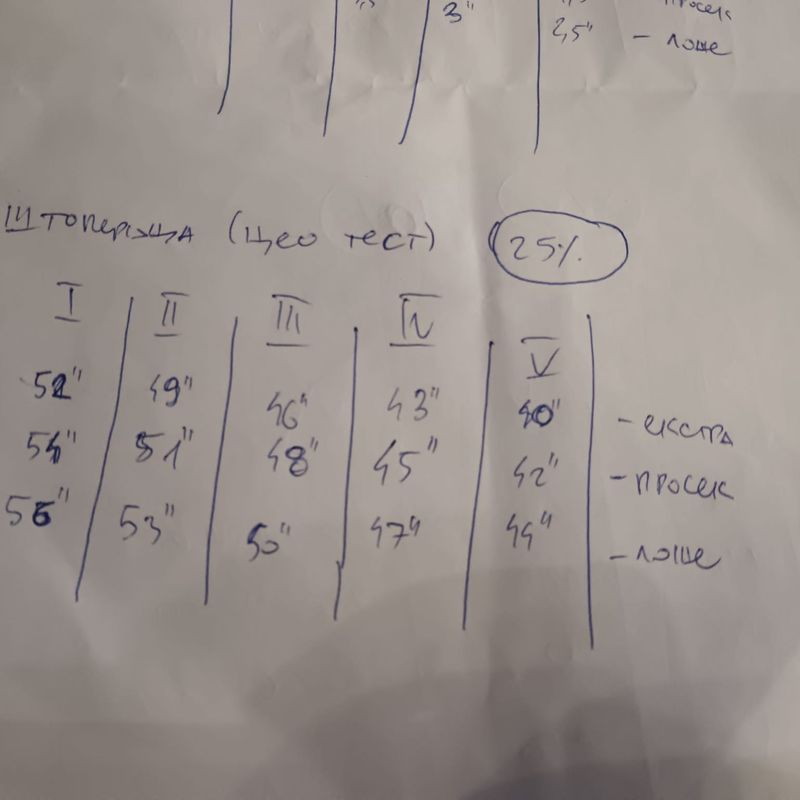 3" - просек
2,5" - лоше
Штоперица (цео тест) 25%
I II III IV V
52" 49" 46" 43" 40" - екстра
54" 51" 48" 45" 42" - просек
56" 53" 50" 47" 44" - лоше